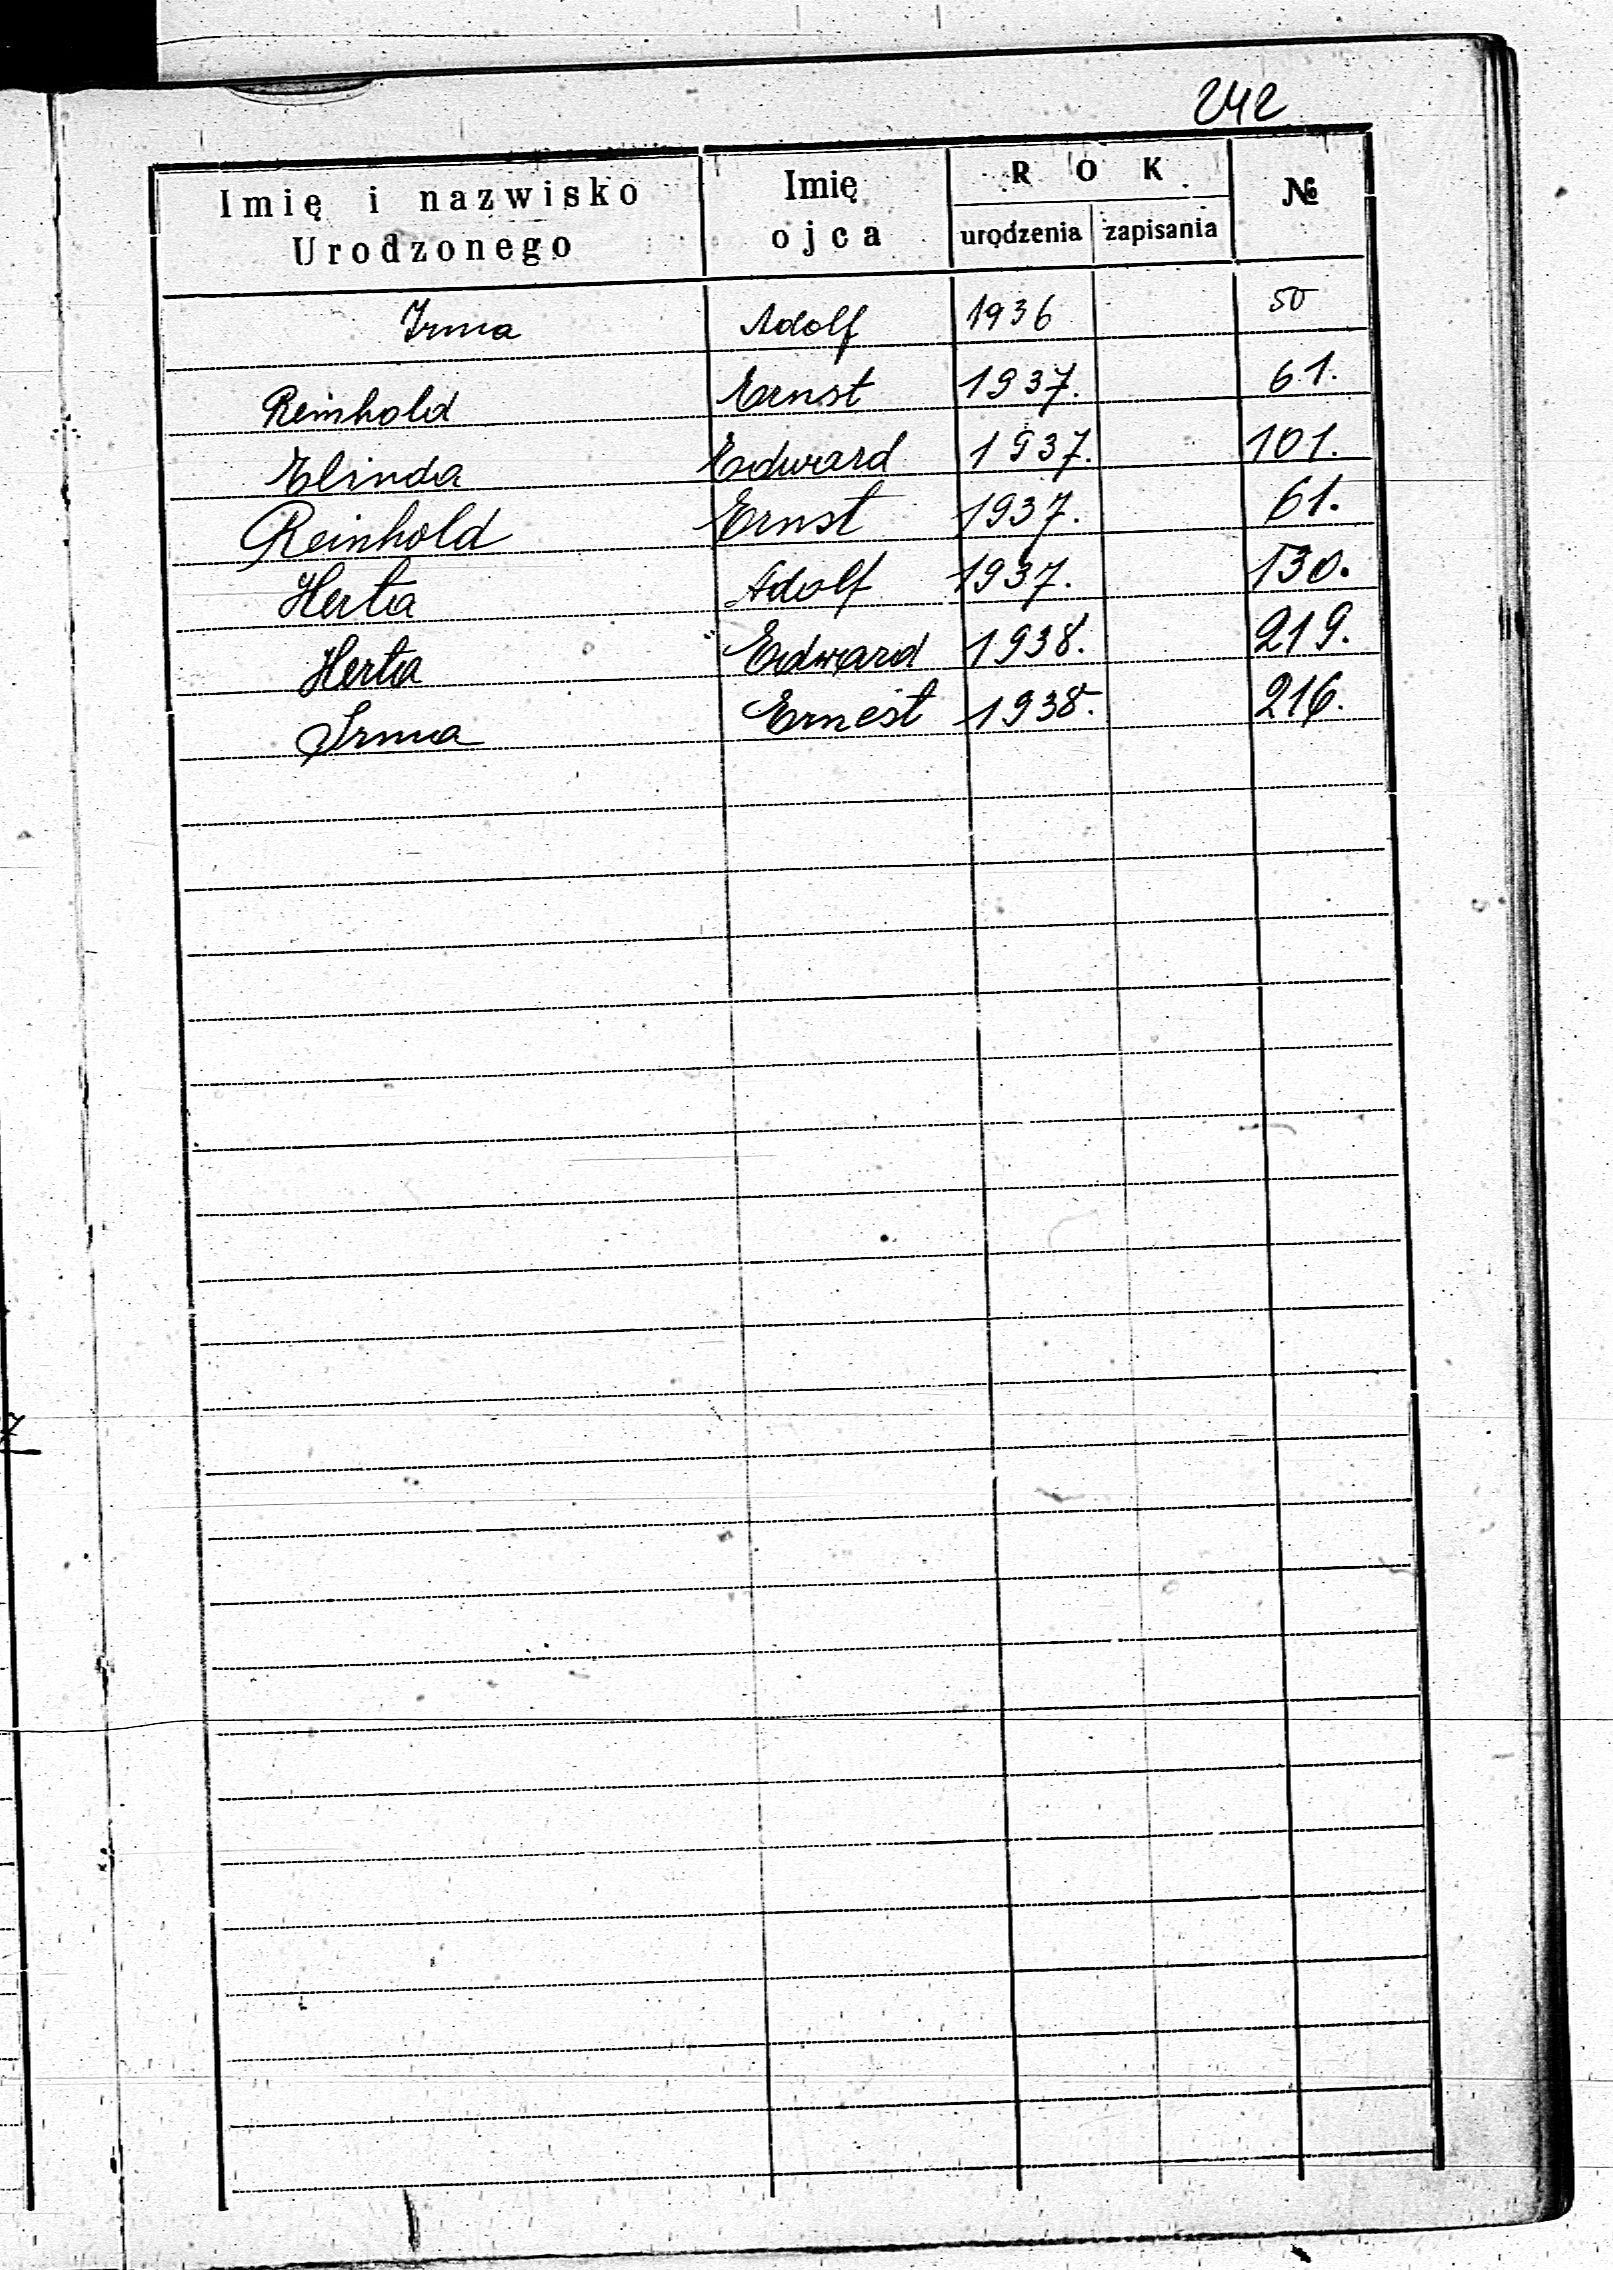 242
Imię i nazwisko Urodzonego Imię ojca ROK urodzenia zapisania №
Irma Adolf 1936 50
Reinhold Ernst 1937. 61.
Elinda Edward 1937. 101.
Reinhold Ernst 1937. 61.
Herta Adolf 1937. 130.
Herta Edward 1938. 219.
Irma Ernest 1938. 216.